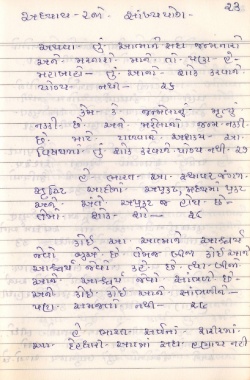 ૨૩
અધ્યાય - ૨જો સાંખ્યયોગ
અથવા તું આત્માને સદા જન્મનારો
અને મરનારો માને તો પણ હે
મહાબાહો - તું આનો શોક કરવાને
યોગ્ય નથી - ૨૬
કેમ કે જન્મેલાનું મૃત્યું
નક્કી છે અને મરેલાનો જન્મ નક્કી
છે માટે ટાળવાને અશક્ય આ
વિષયમાં તું શોક કરવાને યોગ્ય નથી - ૨૭
હે ભારત આ સ્થાવર જંગમ
આદિમાં અપ્રકટ, મધ્યમાં પ્રકટ
અને અંતે અપ્રકટ જ હોય છે -
તેમાં શોક શો - ૨૮
કોઈ આ આત્માને આશ્ચર્ય
જેવો જુએ છે તેમજ બીજો કોઈ આને
આશ્ચર્ય જેવો કહે છે ત્યા બીજો
આને આશ્ચર્ય જેવો સાંભળે છે -
અને કોઈ કોઈ આને સાંભળીને -
પણ સમજતો નથી - ૨૯
હે ભારત સર્વના શરીરમાં
આ દેહધારી આત્મા સદા હણાય નહી